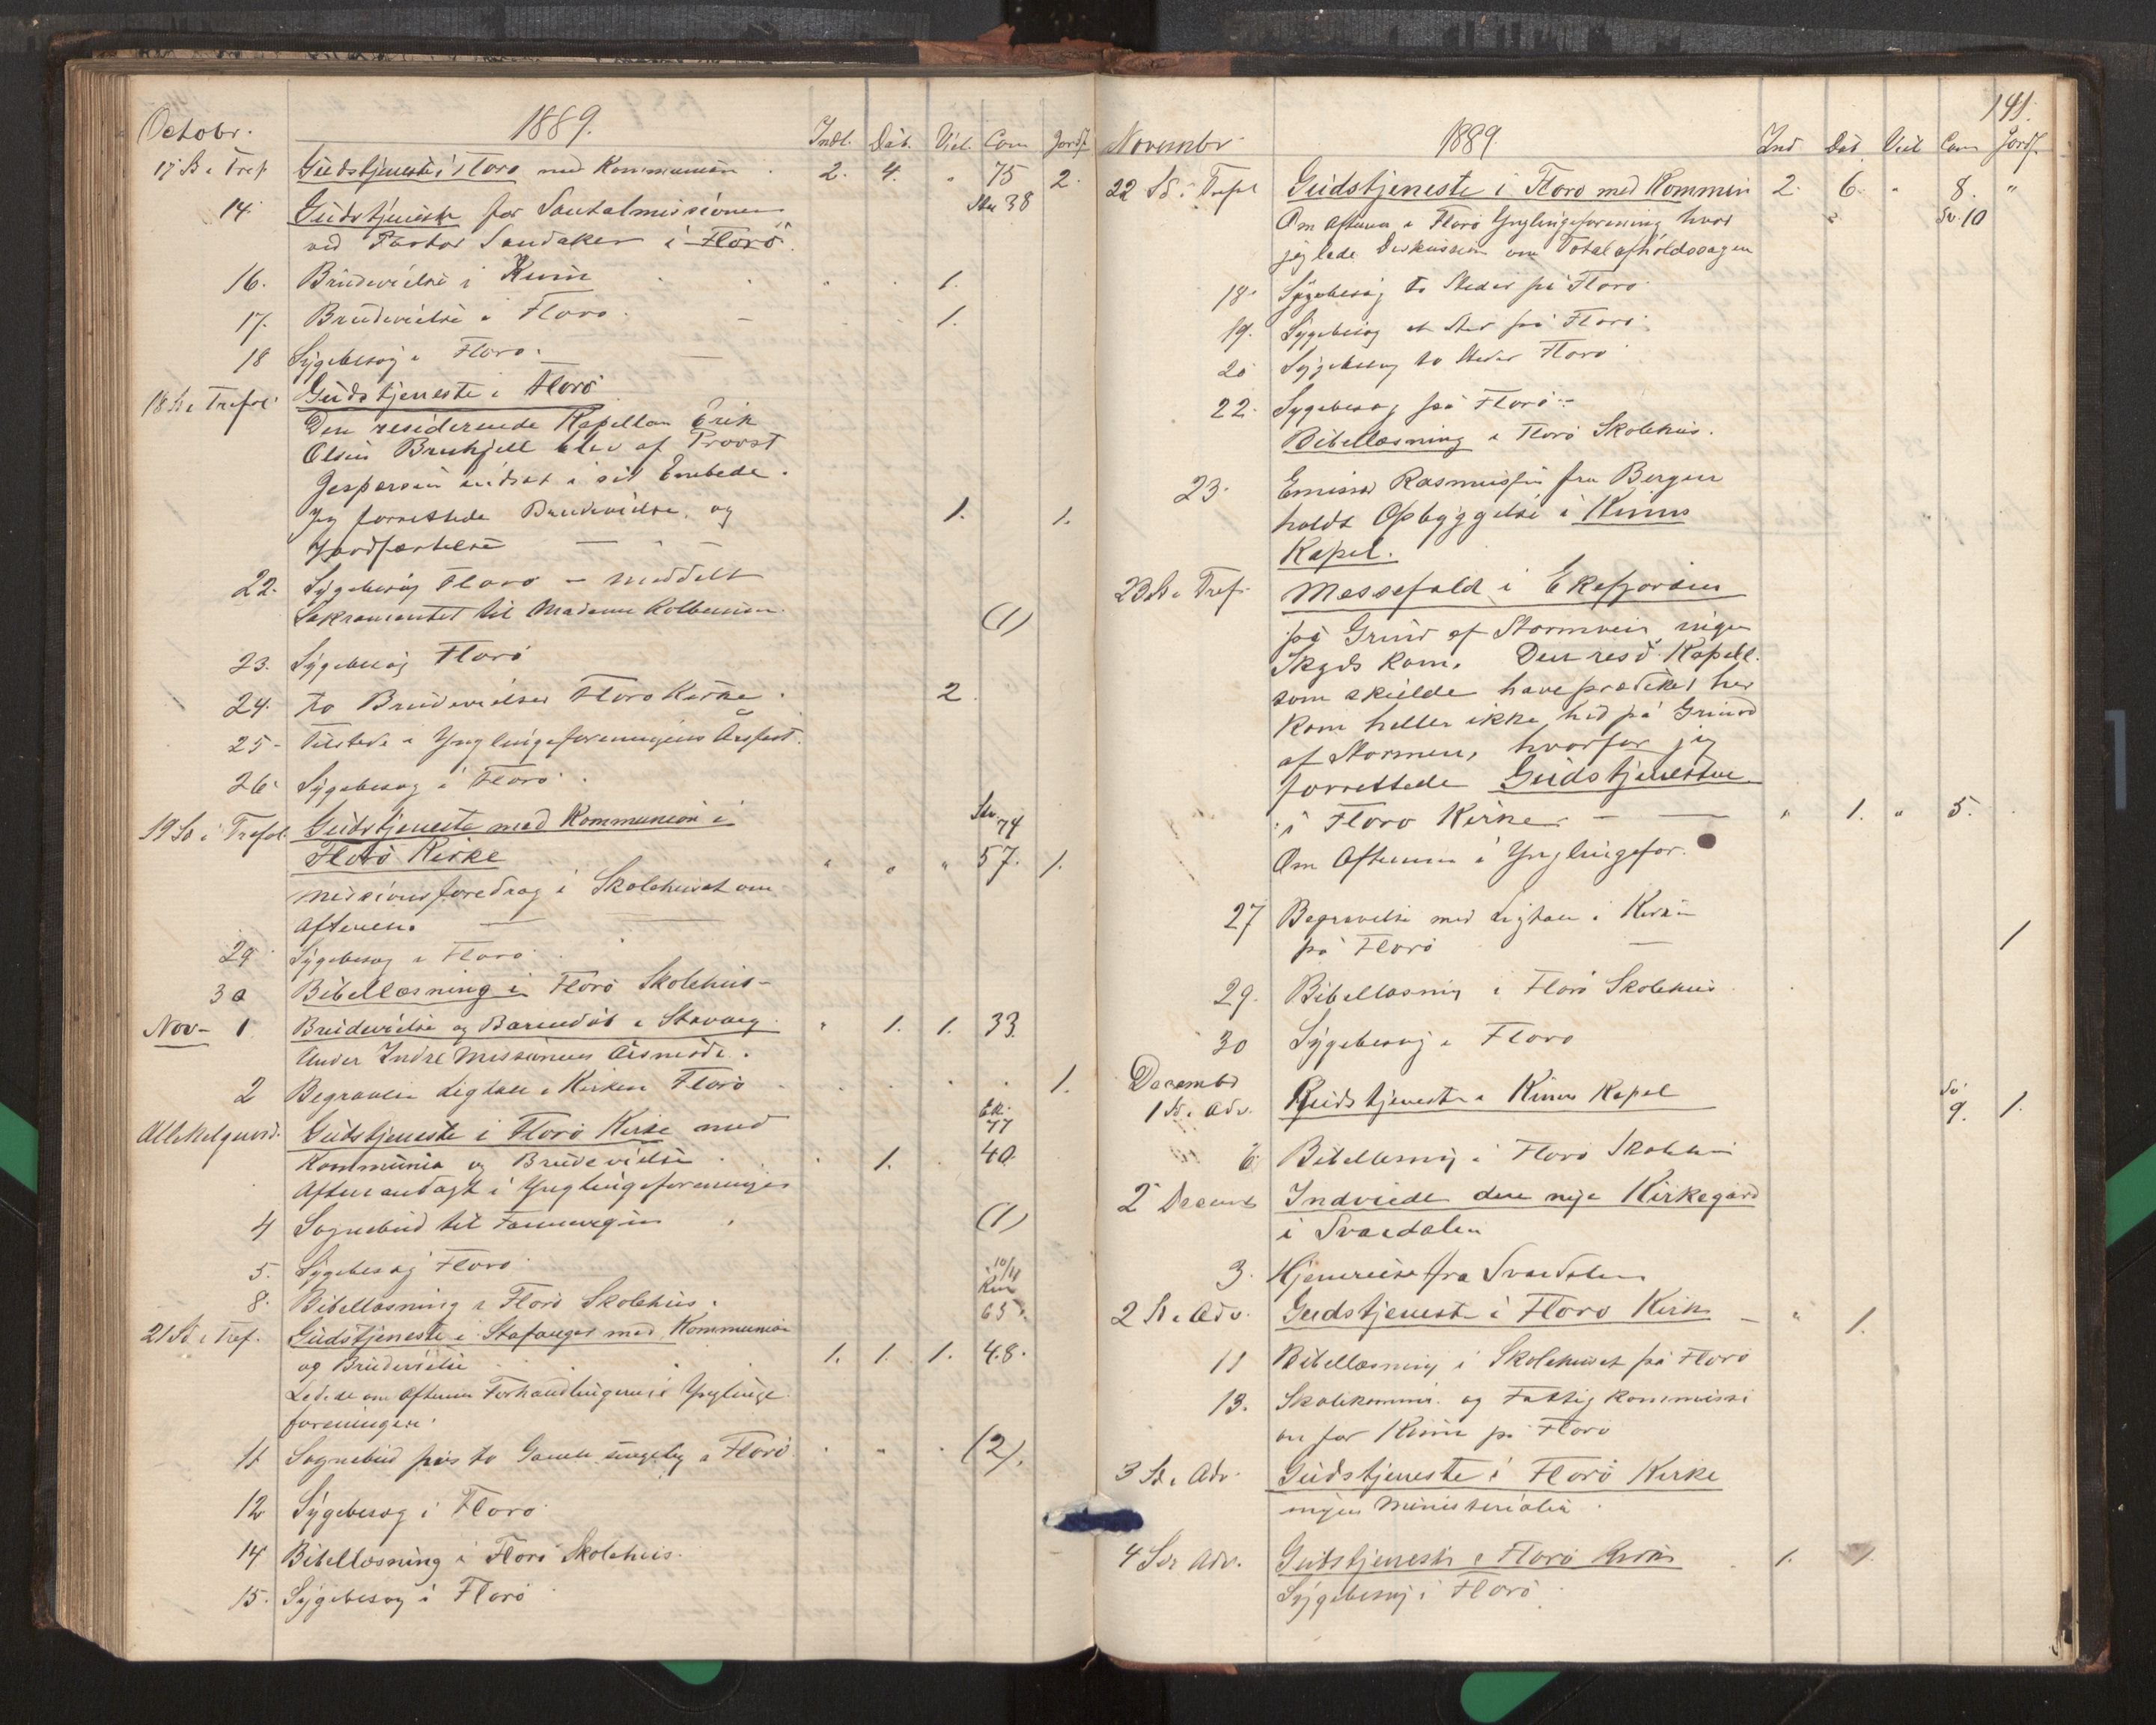 Octobr. 1889. Indl. Dåb. Viel. Com Jordf.
17 S i Tref Gudstjeneste i Florø med Kommunion 2. 4. " 75 2.
14. Gudstjeneste for Santalmissionen 38
ved Pastor Sandaker i Florø.
16. Brudevielse i Kinn 1.
17. Brudevielse i Florø. 1.
18 Sygebesøg i Florø.
18 S i Trefol Gudstjeneste i Florø
Den residerende Kapellan Erik
Olsen Brekjell blev af Provst
Jespersen indsat i sit Embede.
Jeg forrettede Brudevielse og 1. 1.
Jordfæstelse
22. Sygebesøg Florø - meddelt
Sakramentet til Madame (1)
23. Sygebesøg Florø
24. to Brudevielser Florø Kirke. 2
25 - Tilstede i Ynglingeforeningens Årsfest.
26 Sygebesøg i Florø.
19 Sø i Trefol. Gudstjeneste med Kommunion i 74
Florø Kirke " " " 57. 1.
missionsforedrag i Skolehuset om
aftenen.
29 Sygebesøg i Florø
30 Bibellæsning i Florø Skolehus -
Nov - 1 Brudevielse og Barnedåb i Stavang. " 1. 1. 33.
under Indre Missionens Årsmøde.
2 Begravelse Ligtale i Kirken Florø 1.
Allehelgensd. Gudstjeneste i Florø Kirke med 77
Kommunion og Brudevielse 1. 40
Aftenandagt i Ynglingeforeningen
4 Sognebud til (1)
5. Sygebesøg Florø 10/11
8. Bibellæsning i Florø Skolehus. Kin 65.
21 Sø i Tref. Gudstjeneste i Stafanger med Kommunion
og Brudevielse 1. 1. 1. 48.
Ledede om aftenen Forhandlingerne i Ynglinge
foreningen.
11 Sognebud hos to Gamle i Florø (2).
12 Sygebesøg i Florø
14 Bibellæsning i Florø Skolehus.
15. Sygebesøg i Florø
141.
Novembr 1889. Ind Dåb Viel Com Jordf.
22 Sø. i Trefol Gudstjeneste i Florø med Kommun 2. 6. " 8. "
Om Aftenen i Florø Ynglingeforening hvor Sv. 10
jeg lede Diskussion om Totalafholdssagen
18. Sygebesøg to Steder på Florø
19. Sygebesøg et Sted på Florø.
20 Sygebesøg to Steder Florø
22. Sygebesøg på Florø -
Bibellæsning i Florø Skolehus.
23. Emissær Rasmussen fra Bergen
holdt Opbyggelse i Kinns
Kapel.
23 S i Tref. Messefald i Ekefjorden
på Grund af Stormveir ingen
Skyds kom. Den resd. Kapell.
som skulde have prædiket her
kom heller ikke hid på Grund
af Stormen, hvorfor jeg
forrettede Gudstjenesten
i Florø Kirke - " 1. " 5.
Om Aftenen i Ynglingefor.
27 Begravelse med Ligtale i Kirken
på Florø 1
29. Bibellæsning i Florø Skolehus
30 Sygebesøg i Florø
Decembr
1 S. i Adv. Gudstjeneste i Kinns Kapel Sv 9. 1.
6 Bibellæsning i Florø Skolehus
2 Decemb Indviede den nye Kirkegård
i Svardalen
3. Hjemreise fra Svardalen
2 S. i Adv. Gudstjeneste i Florø Kirke - " 1.
11 Bibellæsning i Skolehuset på Florø
13. Skolekommis. og Fattig kommissi
on for Kinn på Florø
3 S. i Adv. Gudstjeneste i Florø Kirke
ingen Ministerialia.
4 S. i Adv. Gudstjeneste i Florø Kirke 1. 1.
Sygebesøg i Florø.